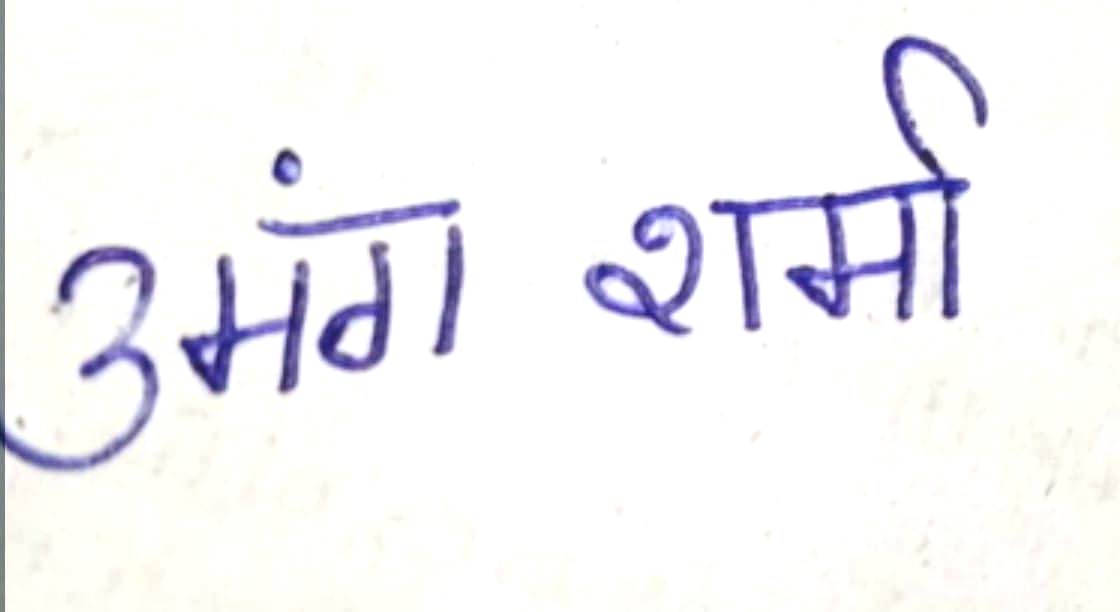 उमंग शर्मा